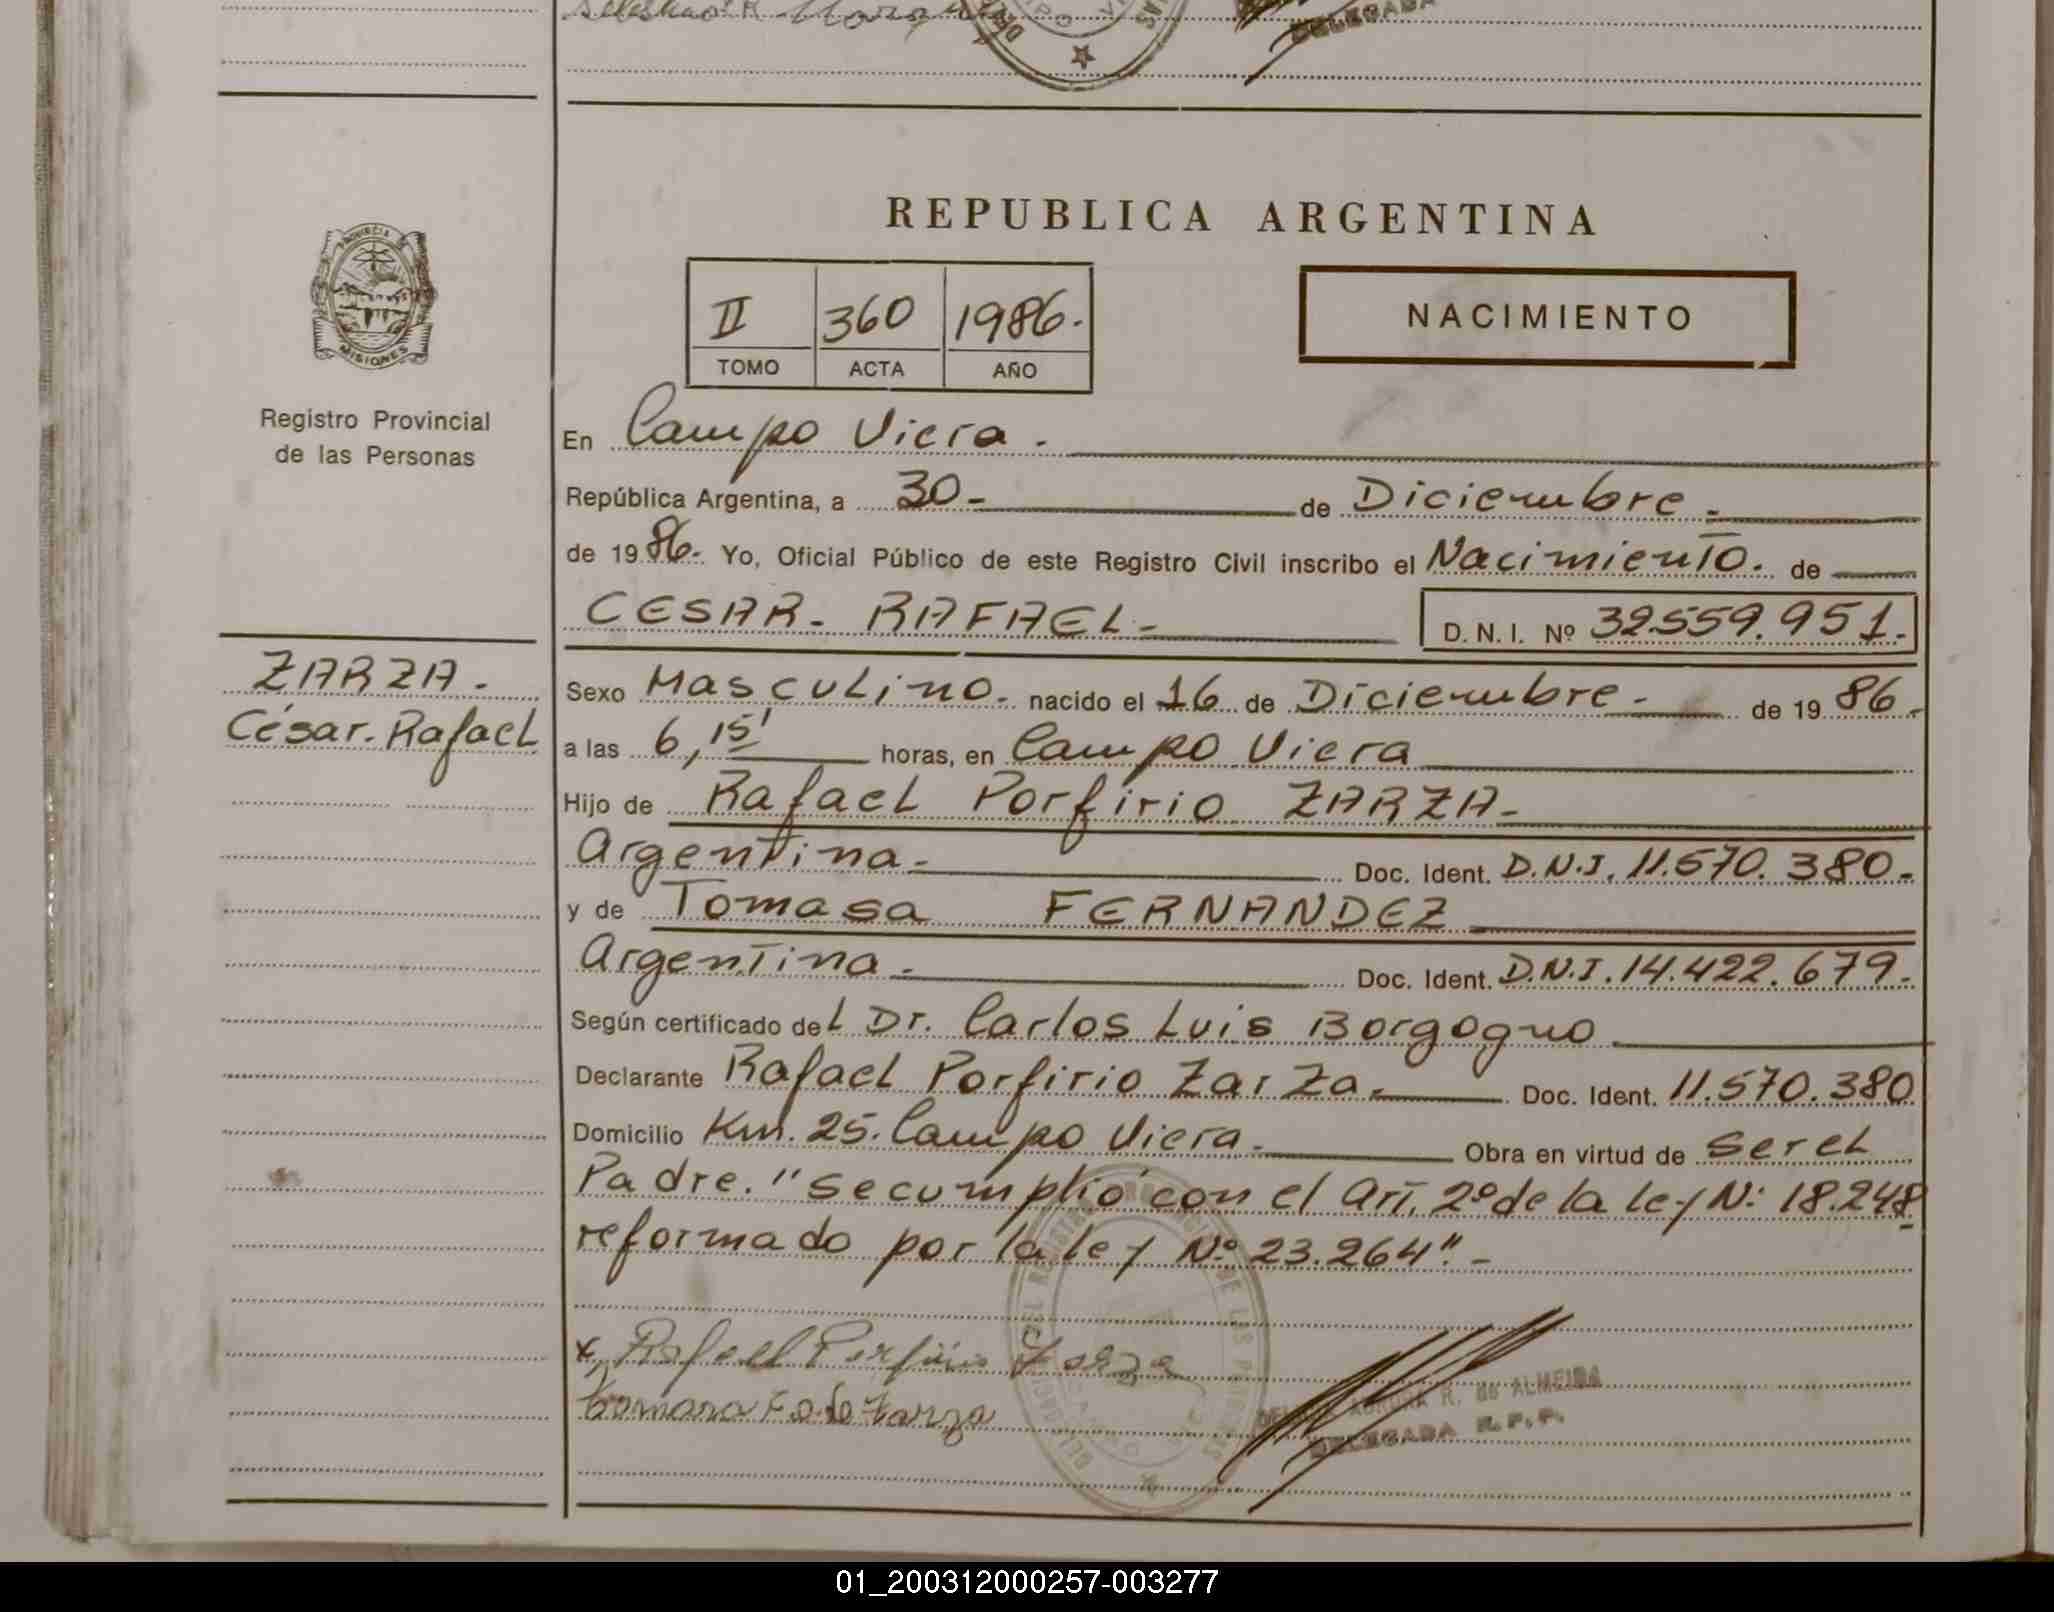 DELEGADA
REPUBLICA ARGENTINA
PROVINCIA DE
MISIONES
Registro Provincial
de las Personas
II 360 1986.
TOMO ACTA AÑO
NACIMIENTO
En Campo Viera.
República Argentina, a 30- de Diciembre.
de 19 86. Yo, Oficial Público de este Registro Civil inscribo el Nacimiento. de
CESAR- RAFAEL- D. N. I. Nº 32559.951.
ZARZA.
César. Rafael
Sexo Masculino. nacido el 16 de Diciembre- de 19 86.
a las 6,15' horas, en Campo Viera
Hijo de Rafael Porfirio ZARZA-
Argentina. Doc. Ident. D.N.I. 11.570.380-
y de Tomasa FERNANDEZ
Argentina. Doc. Ident. D.N.I. 14.422.679.
Según certificado del Dr. Carlos Luis Borgogno
Declarante Rafael Porfirio Zarza. Doc. Ident. 11.570.380
Domicilio Km. 25. Campo Viera. Obra en virtud de ser el
Padre. "se cumplió con el Art. 2º de la ley N: 18.248
reformado por la ley Nº 23.264".-
x Rafael Porfirio Zarza
Tomasa F. de Zarza
AURORA R. de ALMEIDA
DELEGADA R.P.P.
01_200312000257-003277